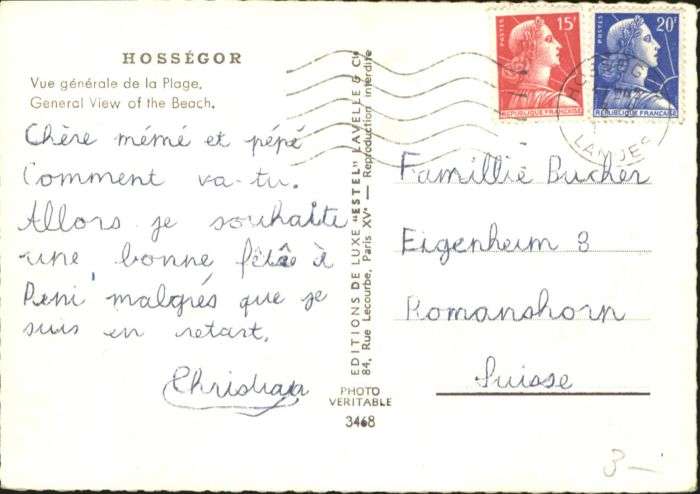 HOSSÉGOR
Vue générale de la Plage.
General View of the Beach.
Chère mémé et pépé
Comment va-tu.
Allors je souhaite
une bonne fête à
René malgrés que je
suis en retart.
EDITIONS DE LUXE "ESTEL" LAVELLE & Cie
84, Rue Lecourbe, Paris XVe — Reproduction interdite
PHOTO
VERITABLE
3468
POSTES 15F
REPUBLIQUE FRANÇAISE
POSTES 20F
REPUBLIQUE FRANÇAISE
LANDES
Famillie Bucher
Eigenheim 3
Romanshorn
Suisse
3—